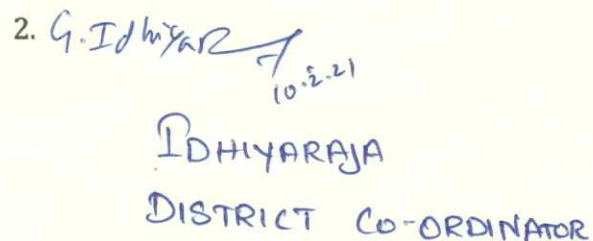 2. G. Idhiyar
10.2.21
IDHIYARAJA
DISTRICT CO-ORDINATOR